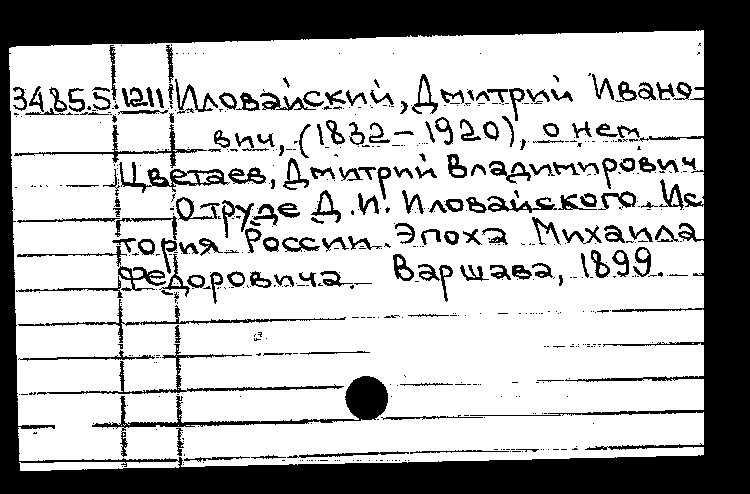 34.85.5 1211 Иловайский, Дмитрий Ивано-
вич, (1832-1920), о нем.
Цветаев, Дмитрий Владимирович
О труде Д.И. Иловайского. Ис-
тория России. Эпоха Михаила
Федоровича. Варшава, 1899.